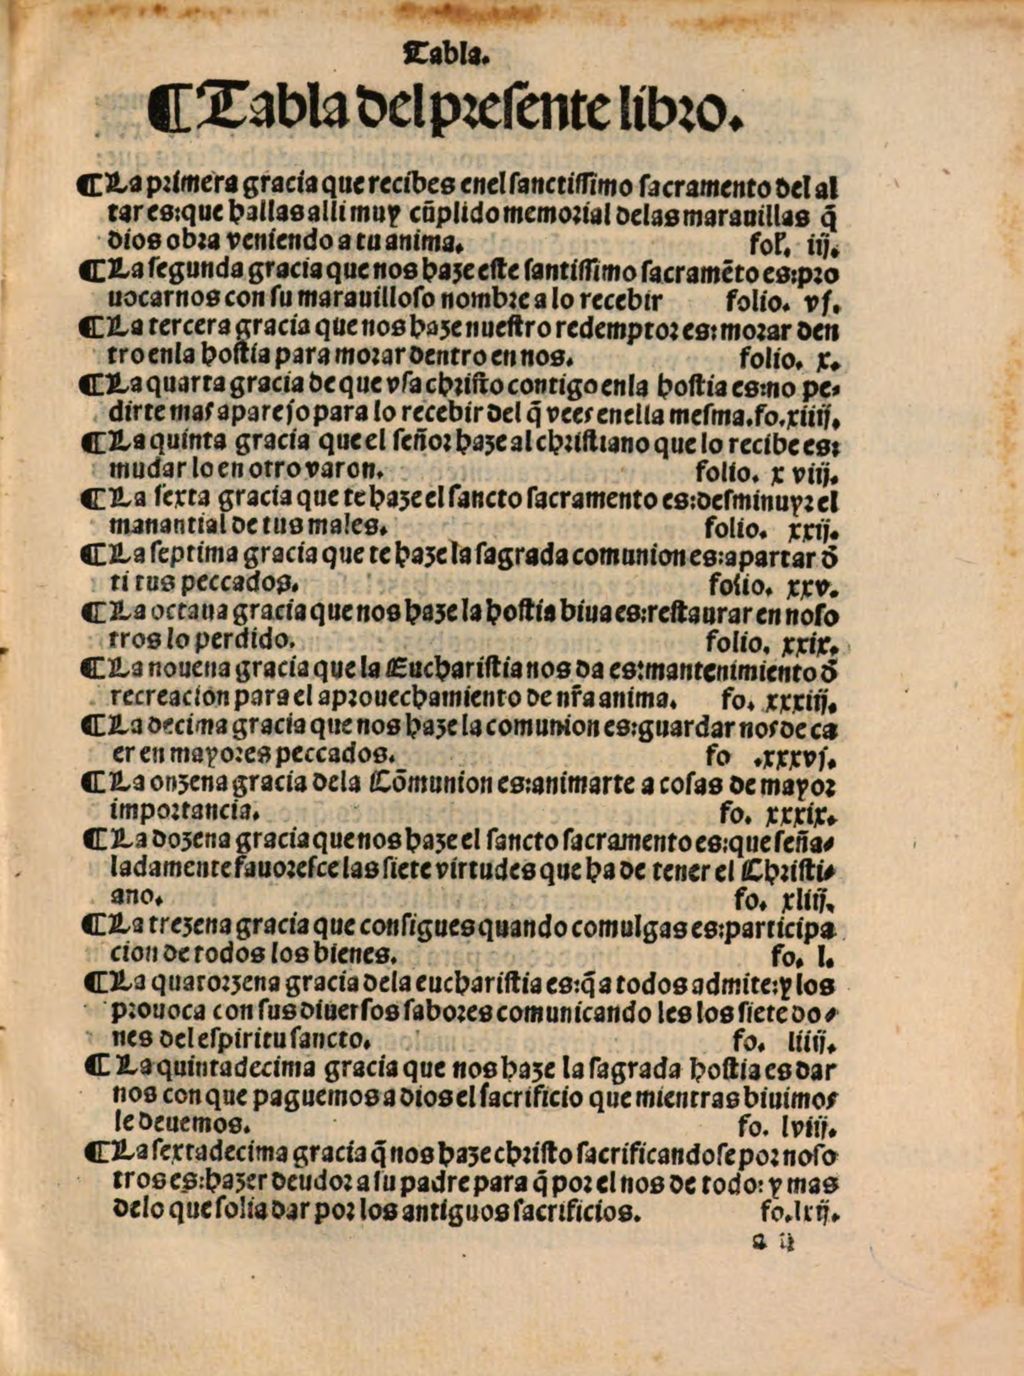 Tabla.
¶Tabla del presente libro.
¶La primera gracia que recibes enel sanctissimo sacramento del al
tar es:que hallas alli muy cũplido memorial delas marauillas q̃
dios obra veniendo a tu anima. fol. iij.
¶La segunda gracia que nos haze este santissimo sacramẽto es:pro
uocarnos con su marauilloso nombre a lo recebir folio. vj.
¶La tercera gracia que nos haze nuestro redemptor es:morar den
tro enla hostia para morar dentro en nos. folio. x.
¶La quarta gracia de que vsa christo contigo enla hostia es:no pe-
dirte mas aparejo para lo recebir del q̃ vees enella mesma.fo.xiiij.
¶La quinta gracia que el señor haze al christiano que lo recibe es:
mudar lo en otro varon. folio. x viij.
¶La sexta gracia que te haze el sancto sacramento es:desminuyr el
manantial de tus males. folio. xxij.
¶La septima gracia que te haze la sagrada comunion es:apartar õ
ti tus peccados. folio. xxv.
¶La octaua gracia que nos haze la hostia biua es:restaurar en noso
tros lo perdido. folio. xxix.
¶La nouena gracia que la Eucharistia nos da es:mantenimiento õ
recreacion para el aprouechamiento de nr̃a anima. fo. xxxiij.
¶La decima gracia que nos haze la comunion es:guardar nos de ca
er en mayores peccados. fo .xxxvj.
¶La onzena gracia dela Cõmunion es:animarte a cosas de mayor
importancia. fo. xxxix.
¶La dozena gracia que nos haze el sancto sacramento es:que seña-
ladamente fauoresce las siete virtudes que ha de tener el Christi-
ano. fo. xliij.
¶La trezena gracia que consigues quando comulgas es:participa
cion de todos los bienes. fo. l.
¶La quatorzena gracia dela eucharistia es:q̃ a todos admite:y los
prouoca con sus diuersos sabores comunicando les los siete do-
nes del espiritu sancto. fo. liiij.
¶La quintadecima gracia que nos haze la sagrada hostia es dar
nos con que paguemos a dios el sacrificio que mientras biuimos
le deuemos. fo. lviij.
¶La sextadecima gracia q̃ nos haze christo sacrificandose por noso
tros es:hazer deudor a su padre para q̃ por el nos de todo: y mas
delo que solia dar por los antiguos sacrificios. fo.lxij.
a ij